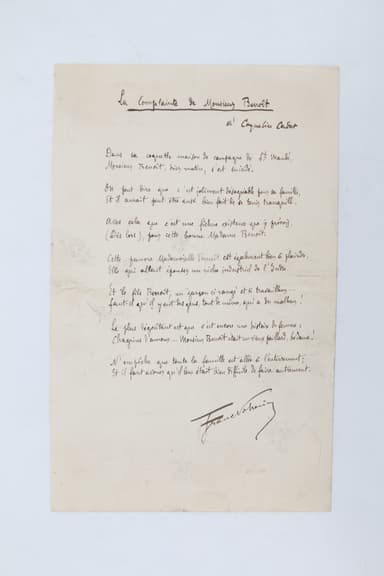 La Complainte de Monsieur Benoît
à Coquelin Cadet
Dans sa coquette maison de campagne de St Mandé,
Monsieur Benoît, hier matin, s'est suicidé.
On peut dire que c'est joliment désagréable pour sa famille,
Et il aurait peut être aussi bien fait de se tenir tranquille.
Avec cela que c'est une fichue existence que je prévois,
(Dès lors,) pour cette bonne Madame Benoît.
Cette pauvre Mademoiselle Benoît est également bien à plaindre,
Elle qui allait épouser un riche industriel de l'Indre
Et le fils Benoît, un garçon si rangé et si travailleur
faut-il qu'il y ait des gens, tout de même, qui a du malheur !
Le plus dégoûtant est que c'est encore une histoire de femme ;
Chagrins d'amour — Monsieur Benoît était un vieux paillard,
N'empêche que toute la famille est allée à l'enterrement ;
Et il faut avouer qu'il leur était bien difficile de faire autrement.
Franc Nohain